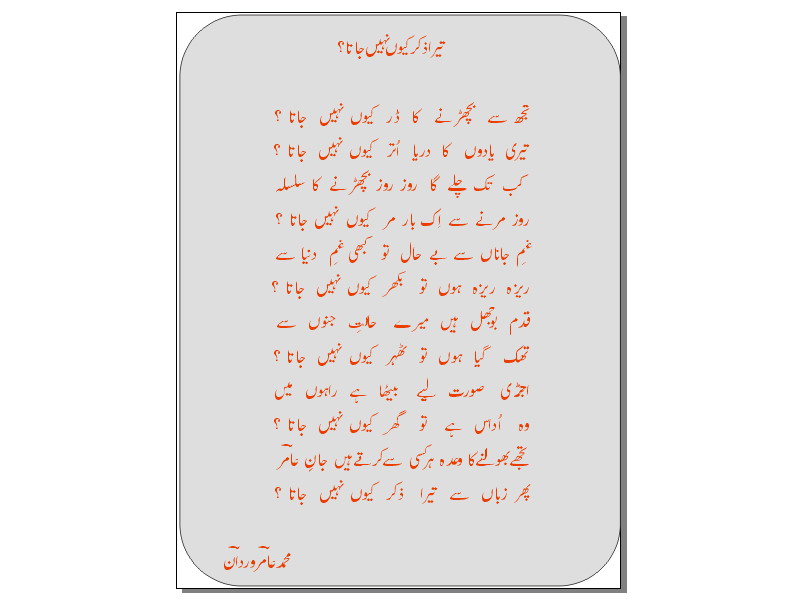 تیرا ذکر کیوں نہیں جاتا؟
تجھ سے بچھڑنے کا ڈر کیوں نہیں جاتا ؟
تیری یادوں کا دریا اُتر کیوں نہیں جاتا ؟
کب تک چلے گا روز روز بچھڑنے کا سلسلہ
روز مرنے سے اِک بار مر کیوں نہیں جاتا ؟
غمِ جاناں سے بے حال تو کبھی غمِ دنیا سے
ریزہ ریزہ ہوں تو بکھر کیوں نہیں جاتا ؟
قدم بوجھل ہیں میرے حالتِ جنوں سے
تھک گیا ہوں تو ٹھہر کیوں نہیں جاتا ؟
اجڑی صورت لیے بیٹھا ہے راہوں میں
وہ اُداس ہے تو گھر کیوں نہیں جاتا ؟
تجھے بھولنے کا وعدہ ہر کسی سے کرتے ہیں جانِ عامر
پھر زباں سے تیرا ذکر کیوں نہیں جاتا ؟
محمد عامر وردان